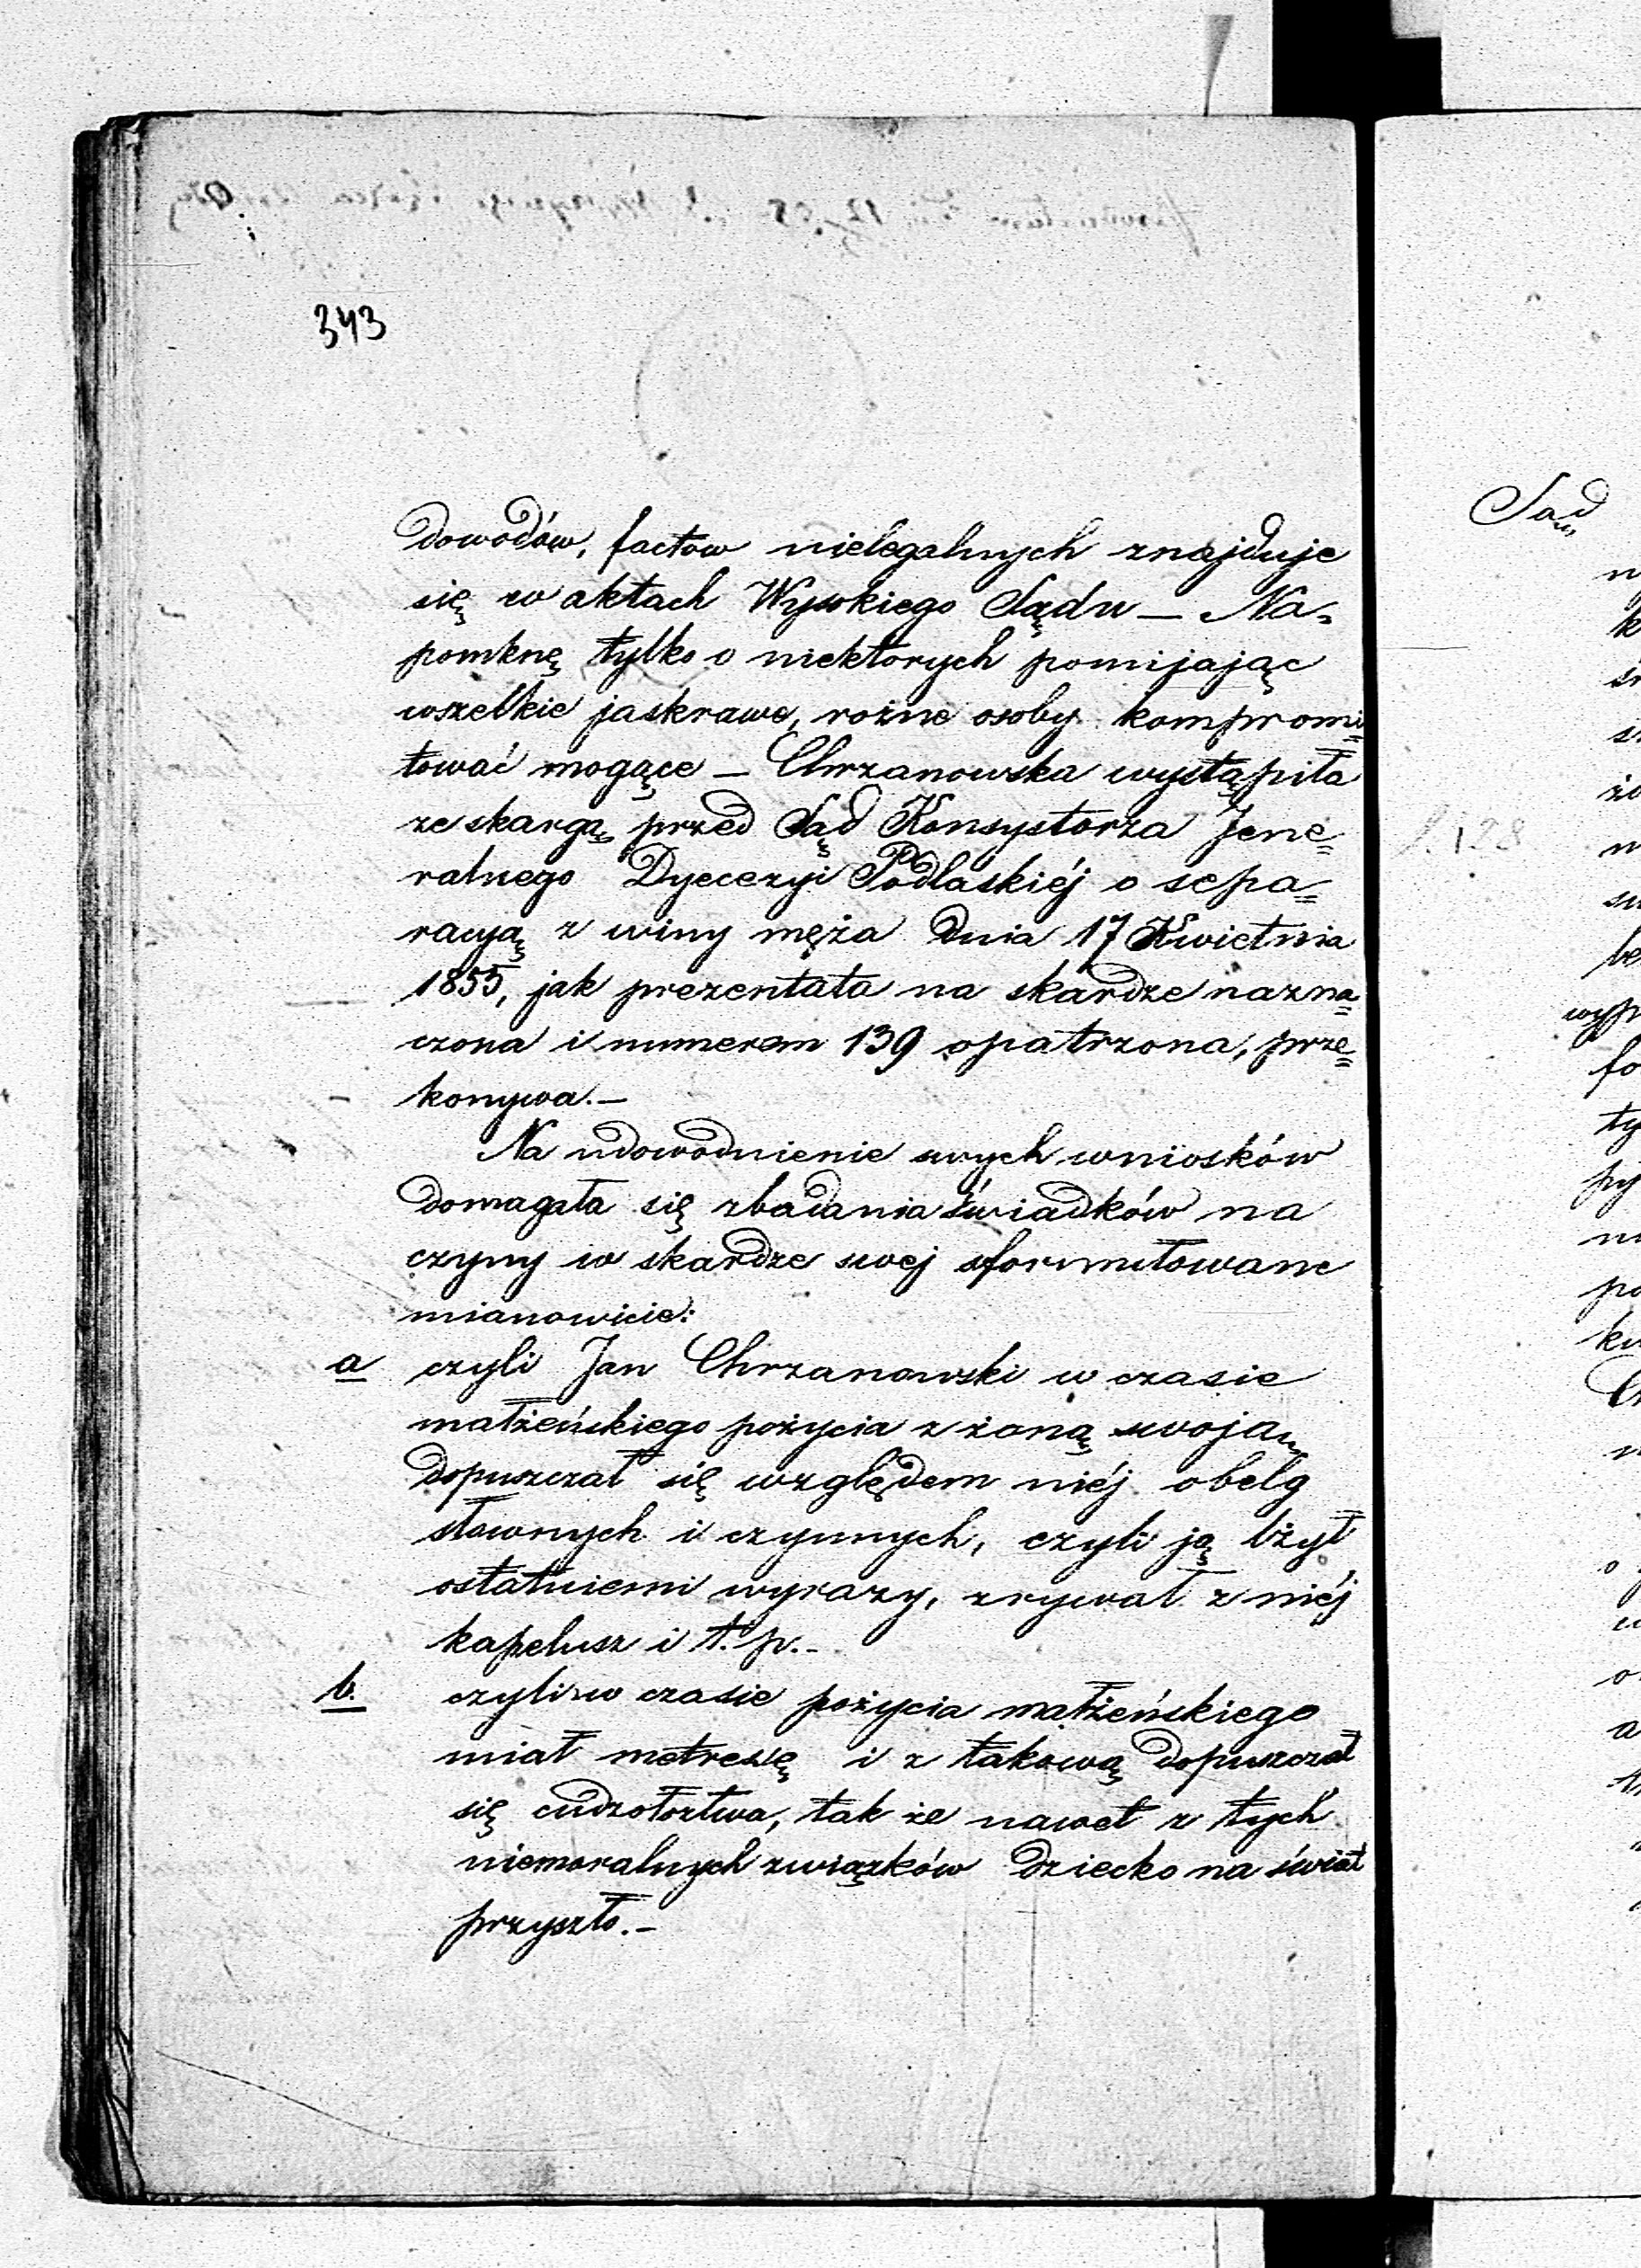 343
dowodów, factow nielegalnych znajduje
się w aktach Wysokiego Sądu — Na=
pomknę tylko o niektorych pomijając
wszelkie jaskrawe, rożne osoby kompromi=
tować mogące — Chrzanowska wystąpiła
ze skargą przed Sąd Konsystorza Jene=
ralnego Dyecezyi Podlaskiéj o sepa=
racyą z winy męża dnia 17 Kwietnia
1855, jak prezentata na skardze nazna=
czona i numerem 139 opatrzona, prze=
konywa.—
Na udowodnienie swych wniosków
domagała się zbadania świadków na
czyny w skardze swej sformułowane
mianowicie:
a czyli Jan Chrzanowski w czasie
małżeńskiego pożycia z żoną swoją
dopuszczał się względem niéj obelg
słownych i czynnych, czyli ją lżył
ostatniemi wyrazy, zrywał z niéj
kapelusz i t. p.—
b. czyli w czasie pożycia małżeńskiego
miał metressę i z takową dopuszczał
się cudzołoztwa, tak że nawet z tych
niemoralnych związków dziecko na świat
przyszło.—
Sąd